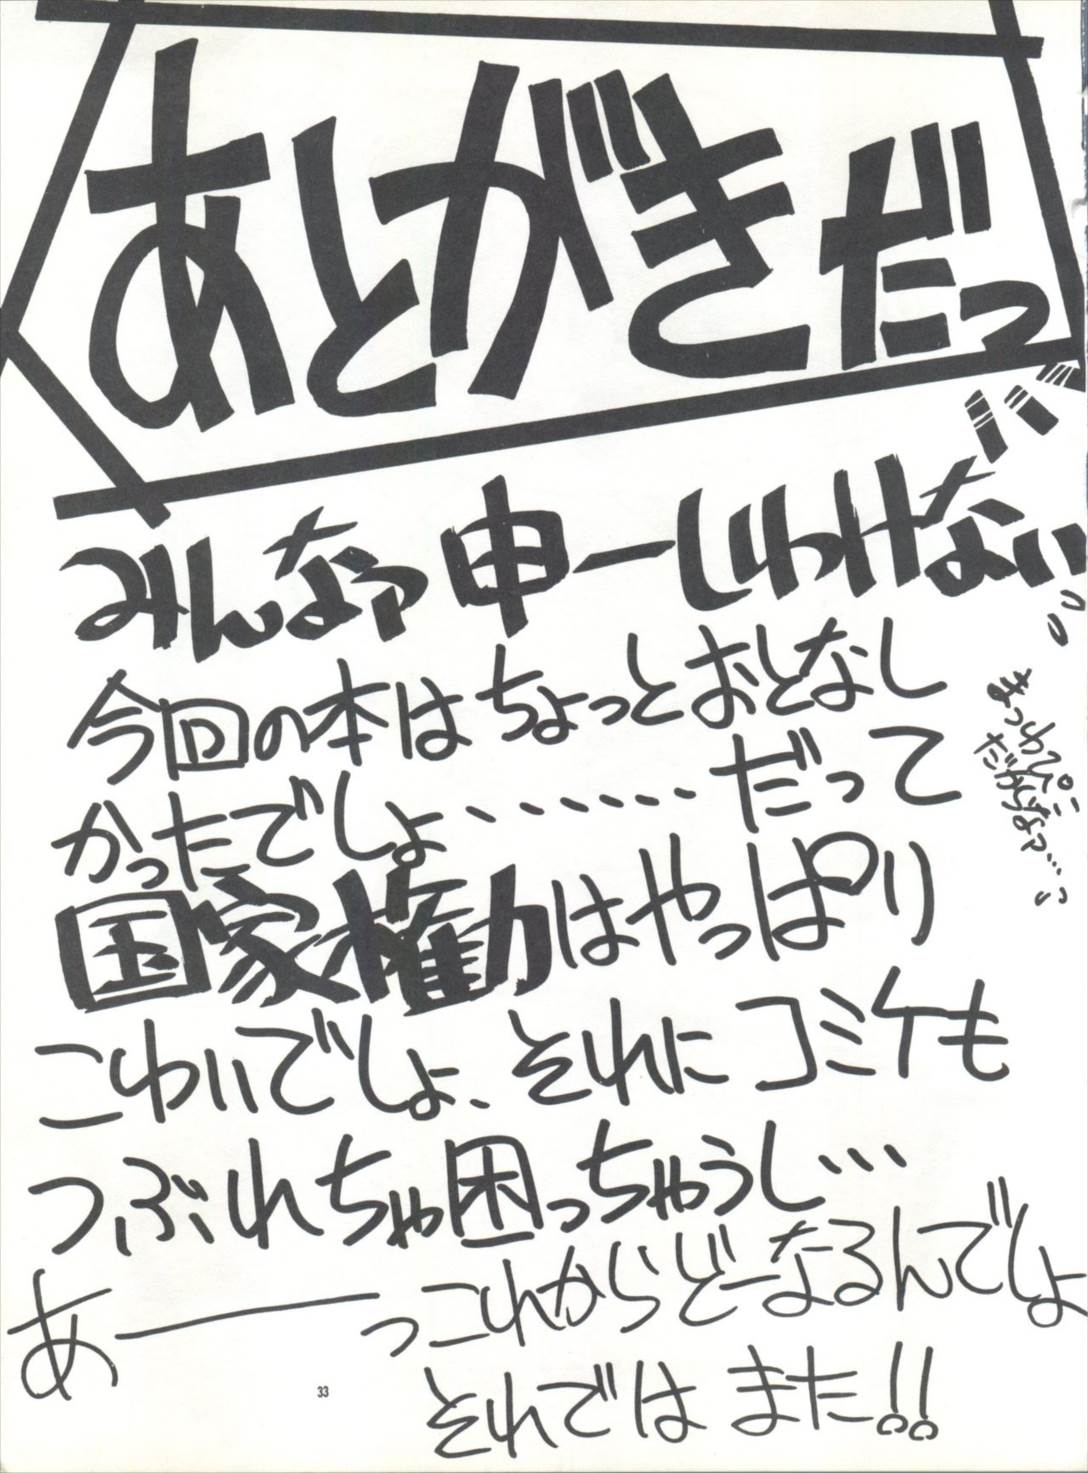 あとがきだっ
みんなァ 申ーしわけない!!
今回の本はちょっとおとなし
かったでしょ、、、、、、、だって
国家権力はやっぱり
こわいでしょ、それにコミケも
つぶれちゃ困っちゃうし…
あーーっこれからどーなるんでしょ
それでは また!!
だからなァ…
33